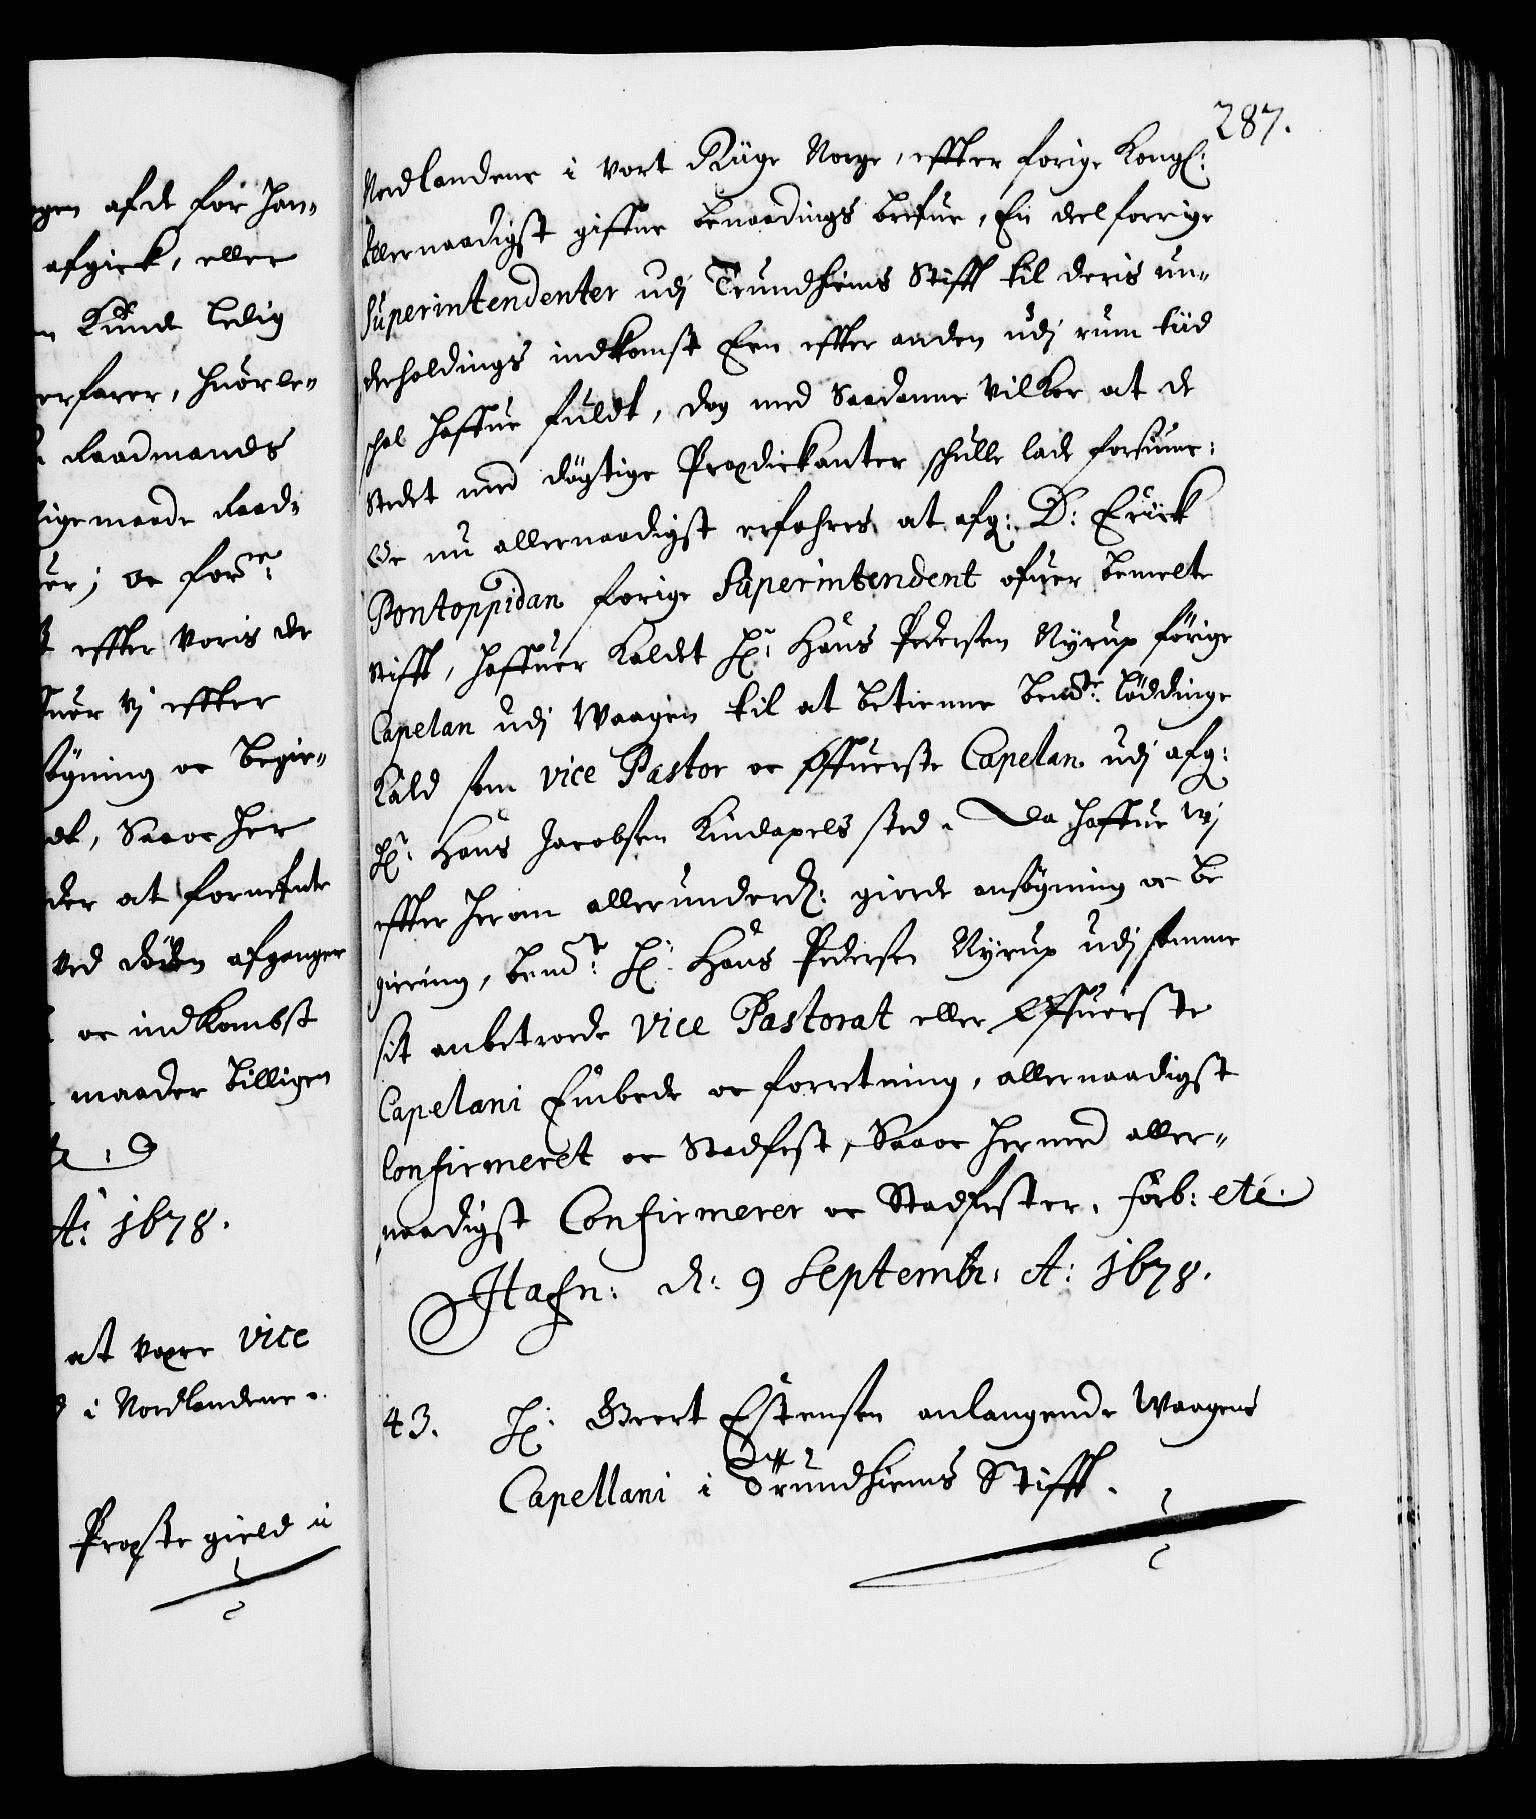 gen afde for han-
afgick, eller
n Kunde ledig
erfarer, huorle-
Raadmands
ligemaade Raad-
uer; oc for:ne
t effter voris de
huor vj effter
søgning oc begie-
dt, Saa oc her
der at fornefnte
ved døden afganger
oc indkombst
maader billigen
A: 1678.
at være vice
i Nordlandene.
Præste gield i
287.
Nordlandene i vort Rüge Norge, effter forige Kongl:
Allernaadigst giffne benaadings brefue, En deel forrige
Superintendenter udj Trundhiems Stifft til deris un-
derholdings indkomst Een effter anden udj rum tiid
schal haffue fuldt, dog med Saadanne vilkor at de
Stedet med døgtige Prædickanter schulle lade forsiune:
Oc nu allernaadigst erfahres at afg: D: Erick
Pontoppidan forige Superintendent ofuer bemelte
Stifft, haffuer Kaldet Hr: Hans Pedersen Nyrup förige
Capelan udj Waagen til at betienne bemte: Löddinge
Kald som vice Pastor oc Öffuerste Capelan udj afg:
Hr: Hans Jacobsen Kindapels sted. Da haffue wj
effter herom allerunderd: giorde ansøgning oc be
giering, bemte: Hr: Hans Pedersen Nyrup udj samme
sit anbetroede Vice Pastorat eller Öffuerste
Capelani Embede oc forretning, allernaadigst
Confirmeret oc Stadfest, Saa oc hermed aller-
naadigst Confirmerer oc Stadfester. Forb: etc.
Hafn: d: 9 Septembr: A: 1678.
43. Hr: Gert Estensen anlangende Waagens
Capellani i Trundhiems Stifft.